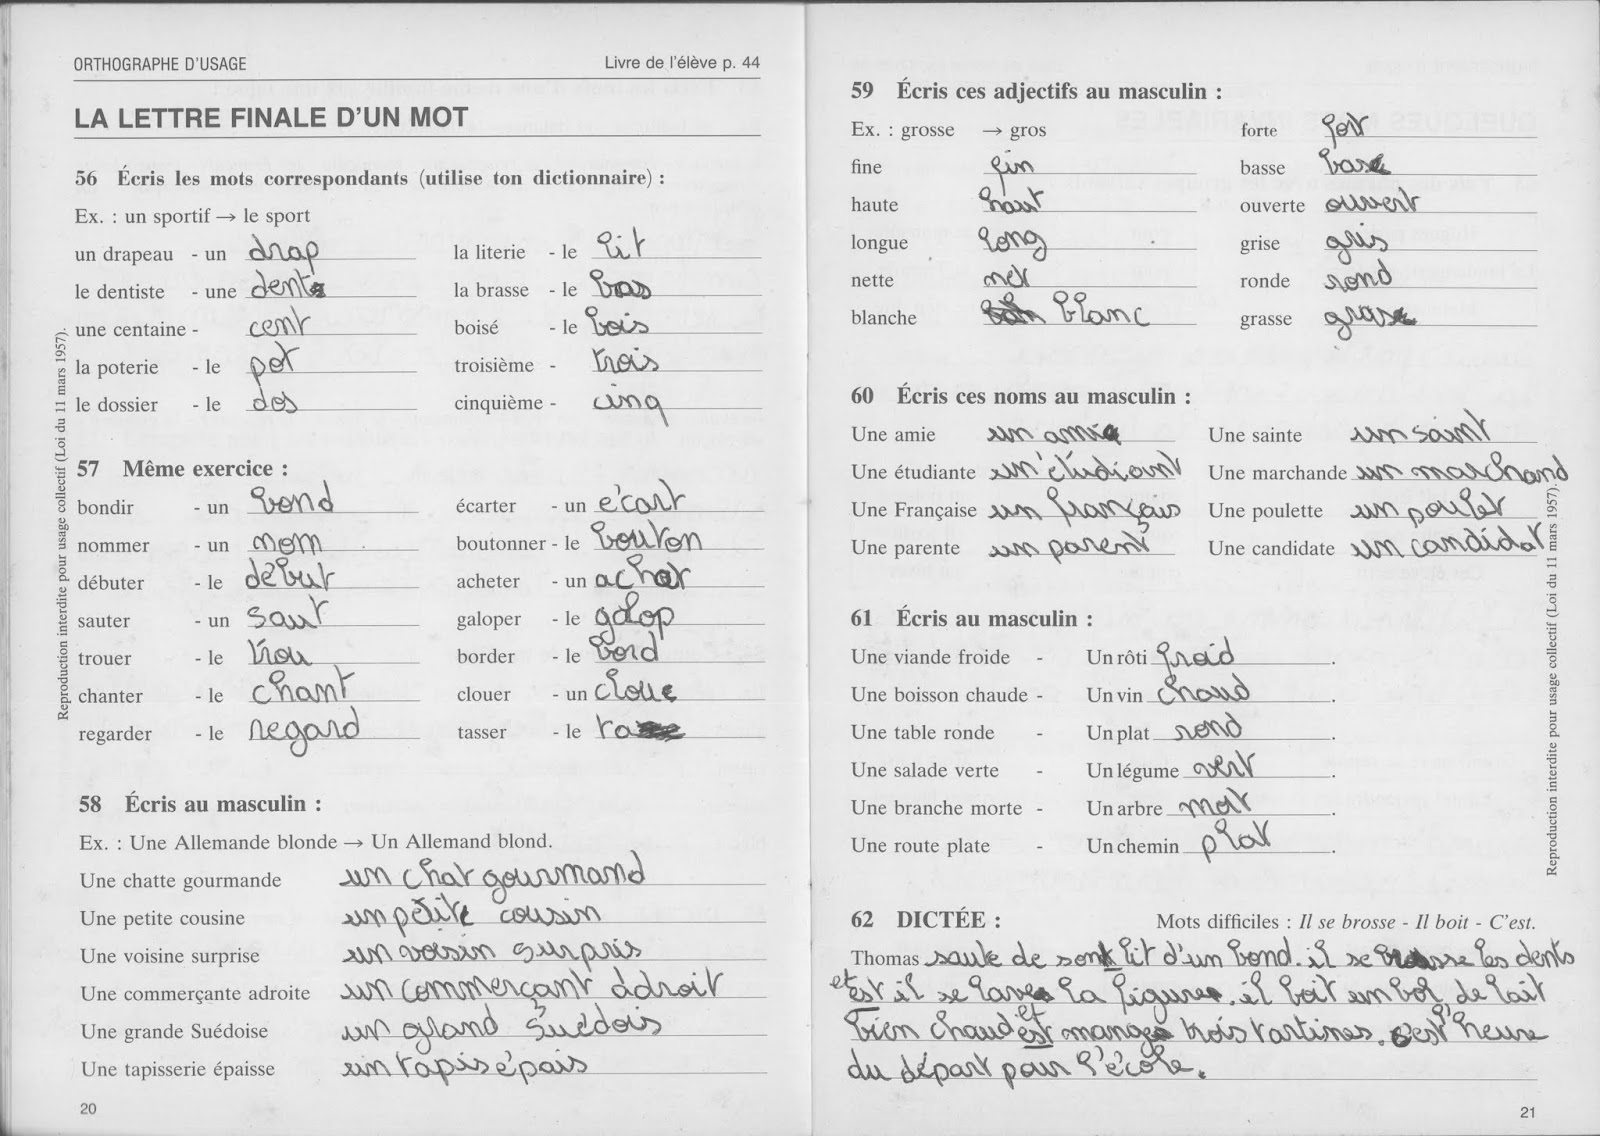 ORTHOGRAPHE D'USAGE Livre de l'élève p. 44
LA LETTRE FINALE D'UN MOT
56 Écris les mots correspondants (utilise ton dictionnaire) :
Ex. : un sportif → le sport
un drapeau - un drap la literie - le lit
le dentiste - une dent la brasse - le bras
une centaine - cent boisé - le bois
la poterie - le pot troisième - trois
le dossier - le dos cinquième - cinq
57 Même exercice :
bondir - un bond écarter - un écart
nommer - un nom boutonner - le bouton
débuter - le début acheter - un achat
sauter - un saut galoper - le galop
trouer - le trou border - le bord
chanter - le chant clouer - un clou
regarder - le regard tasser - le
58 Écris au masculin :
Ex. : Une Allemande blonde → Un Allemand blond.
Une chatte gourmande un chat gourmand
Une petite cousine un petit cousin
Une voisine surprise un voisin surpris
Une commerçante adroite un commerçant adroit
Une grande Suédoise un grand Suédois
Une tapisserie épaisse un tapis épais
20
Reproduction interdite pour usage collectif (Loi du 11 mars 1957).
59 Écris ces adjectifs au masculin :
Ex. : grosse → gros forte fort
fine fin basse bas
haute haut ouverte ouvert
longue long grise gris
nette net ronde rond
blanche blanc grasse gras
60 Écris ces noms au masculin :
Une amie un ami Une sainte un saint
Une étudiante un étudiant Une marchande un marchand
Une Française un français Une poulette un poulet
Une parente un parent Une candidate un candidat
61 Écris au masculin :
Une viande froide - Un rôti froid.
Une boisson chaude - Un vin chaud.
Une table ronde - Un plat rond.
Une salade verte - Un légume vert.
Une branche morte - Un arbre mort.
Une route plate - Un chemin plat.
62 DICTÉE : Mots difficiles : Il se brosse - Il boit - C'est.
Thomas saute de son lit d'un bond. il se brosse les dents
et il se lave la figure. il boit un bol de lait
bien chaud et mange trois tartines. c'est l'heure
du départ pour l'école.
21
Reproduction interdite pour usage collectif (Loi du 11 mars 1957).